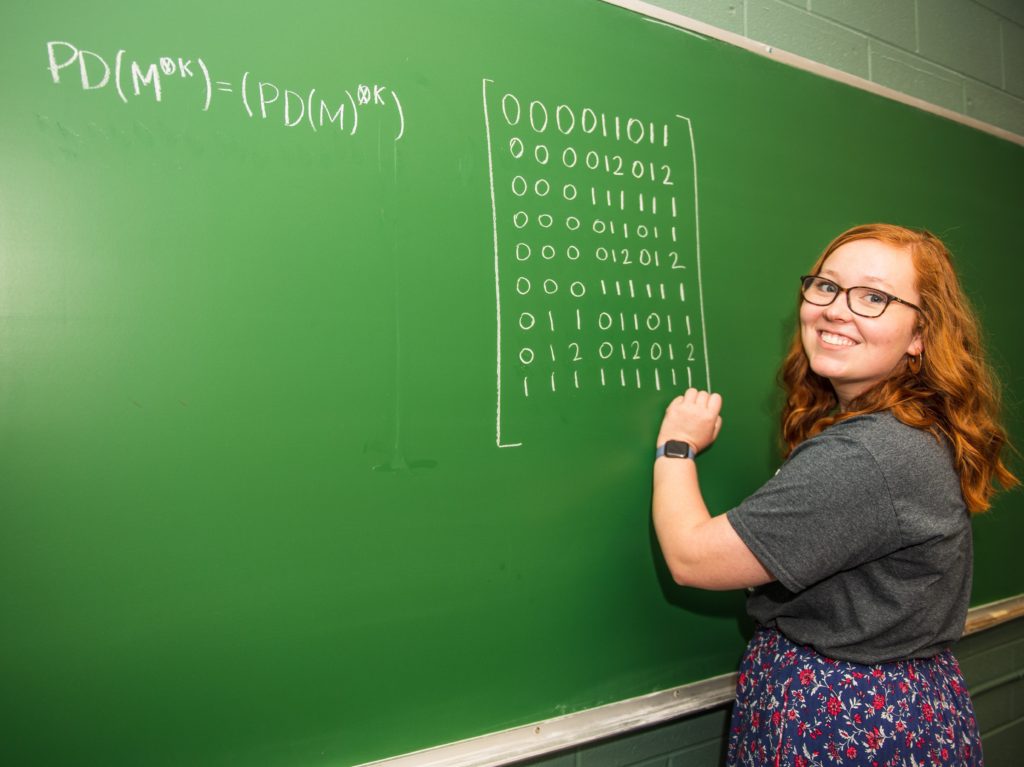 PD(M^⊗K) = (PD(M)^⊗K)
0 0 0 0 1 1 0 1 1
0 0 0 0 1 2 0 1 2
0 0 0 1 1 1 1 1 1
0 0 0 0 1 1 0 1 1
0 0 0 0 1 2 0 1 2
0 0 0 1 1 1 1 1 1
0 1 1 0 1 1 0 1 1
0 1 2 0 1 2 0 1 2
1 1 1 1 1 1 1 1 1